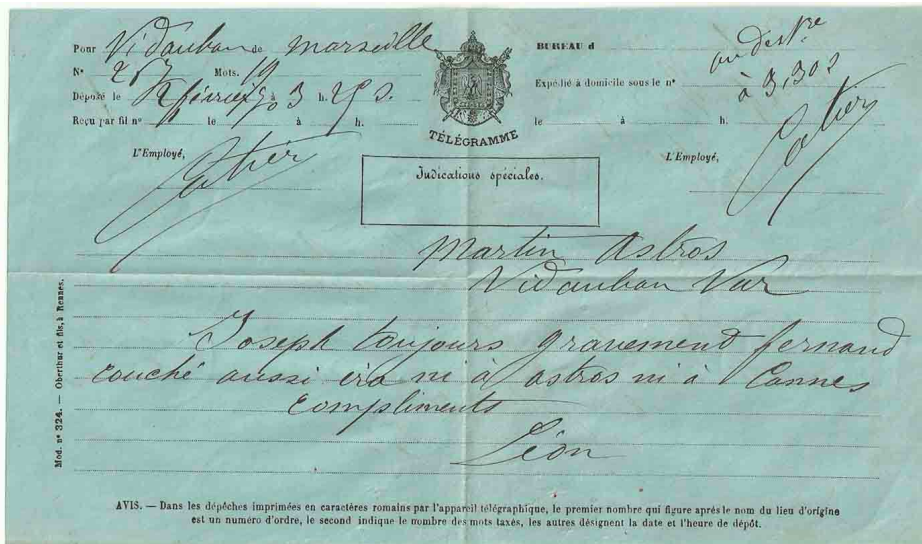 Pour Vidauban de Marseille
N° 257 Mots. 19
Déposé le février 70 à 3 h. s.
Reçu par fil n° le à h.
L'Employé,
TÉLÉGRAMME
Indications spéciales.
BUREAU d
Expédié à domicile sous le n°
à 3,30 s
le à h.
L'Employé,
Martin Astros
Vidauban Var
Joseph toujours gravement fernand
couché aussi ira ni à astros ni à Cannes
Compliments
Léon
Mod. n° 324. — Oberthur et fils, à Rennes.
AVIS. — Dans les dépêches imprimées en caractères romains par l'appareil télégraphique, le premier nombre qui figure après le nom du lieu d'origine
est un numéro d'ordre, le second indique le nombre des mots taxés, les autres désignent la date et l'heure de dépôt.